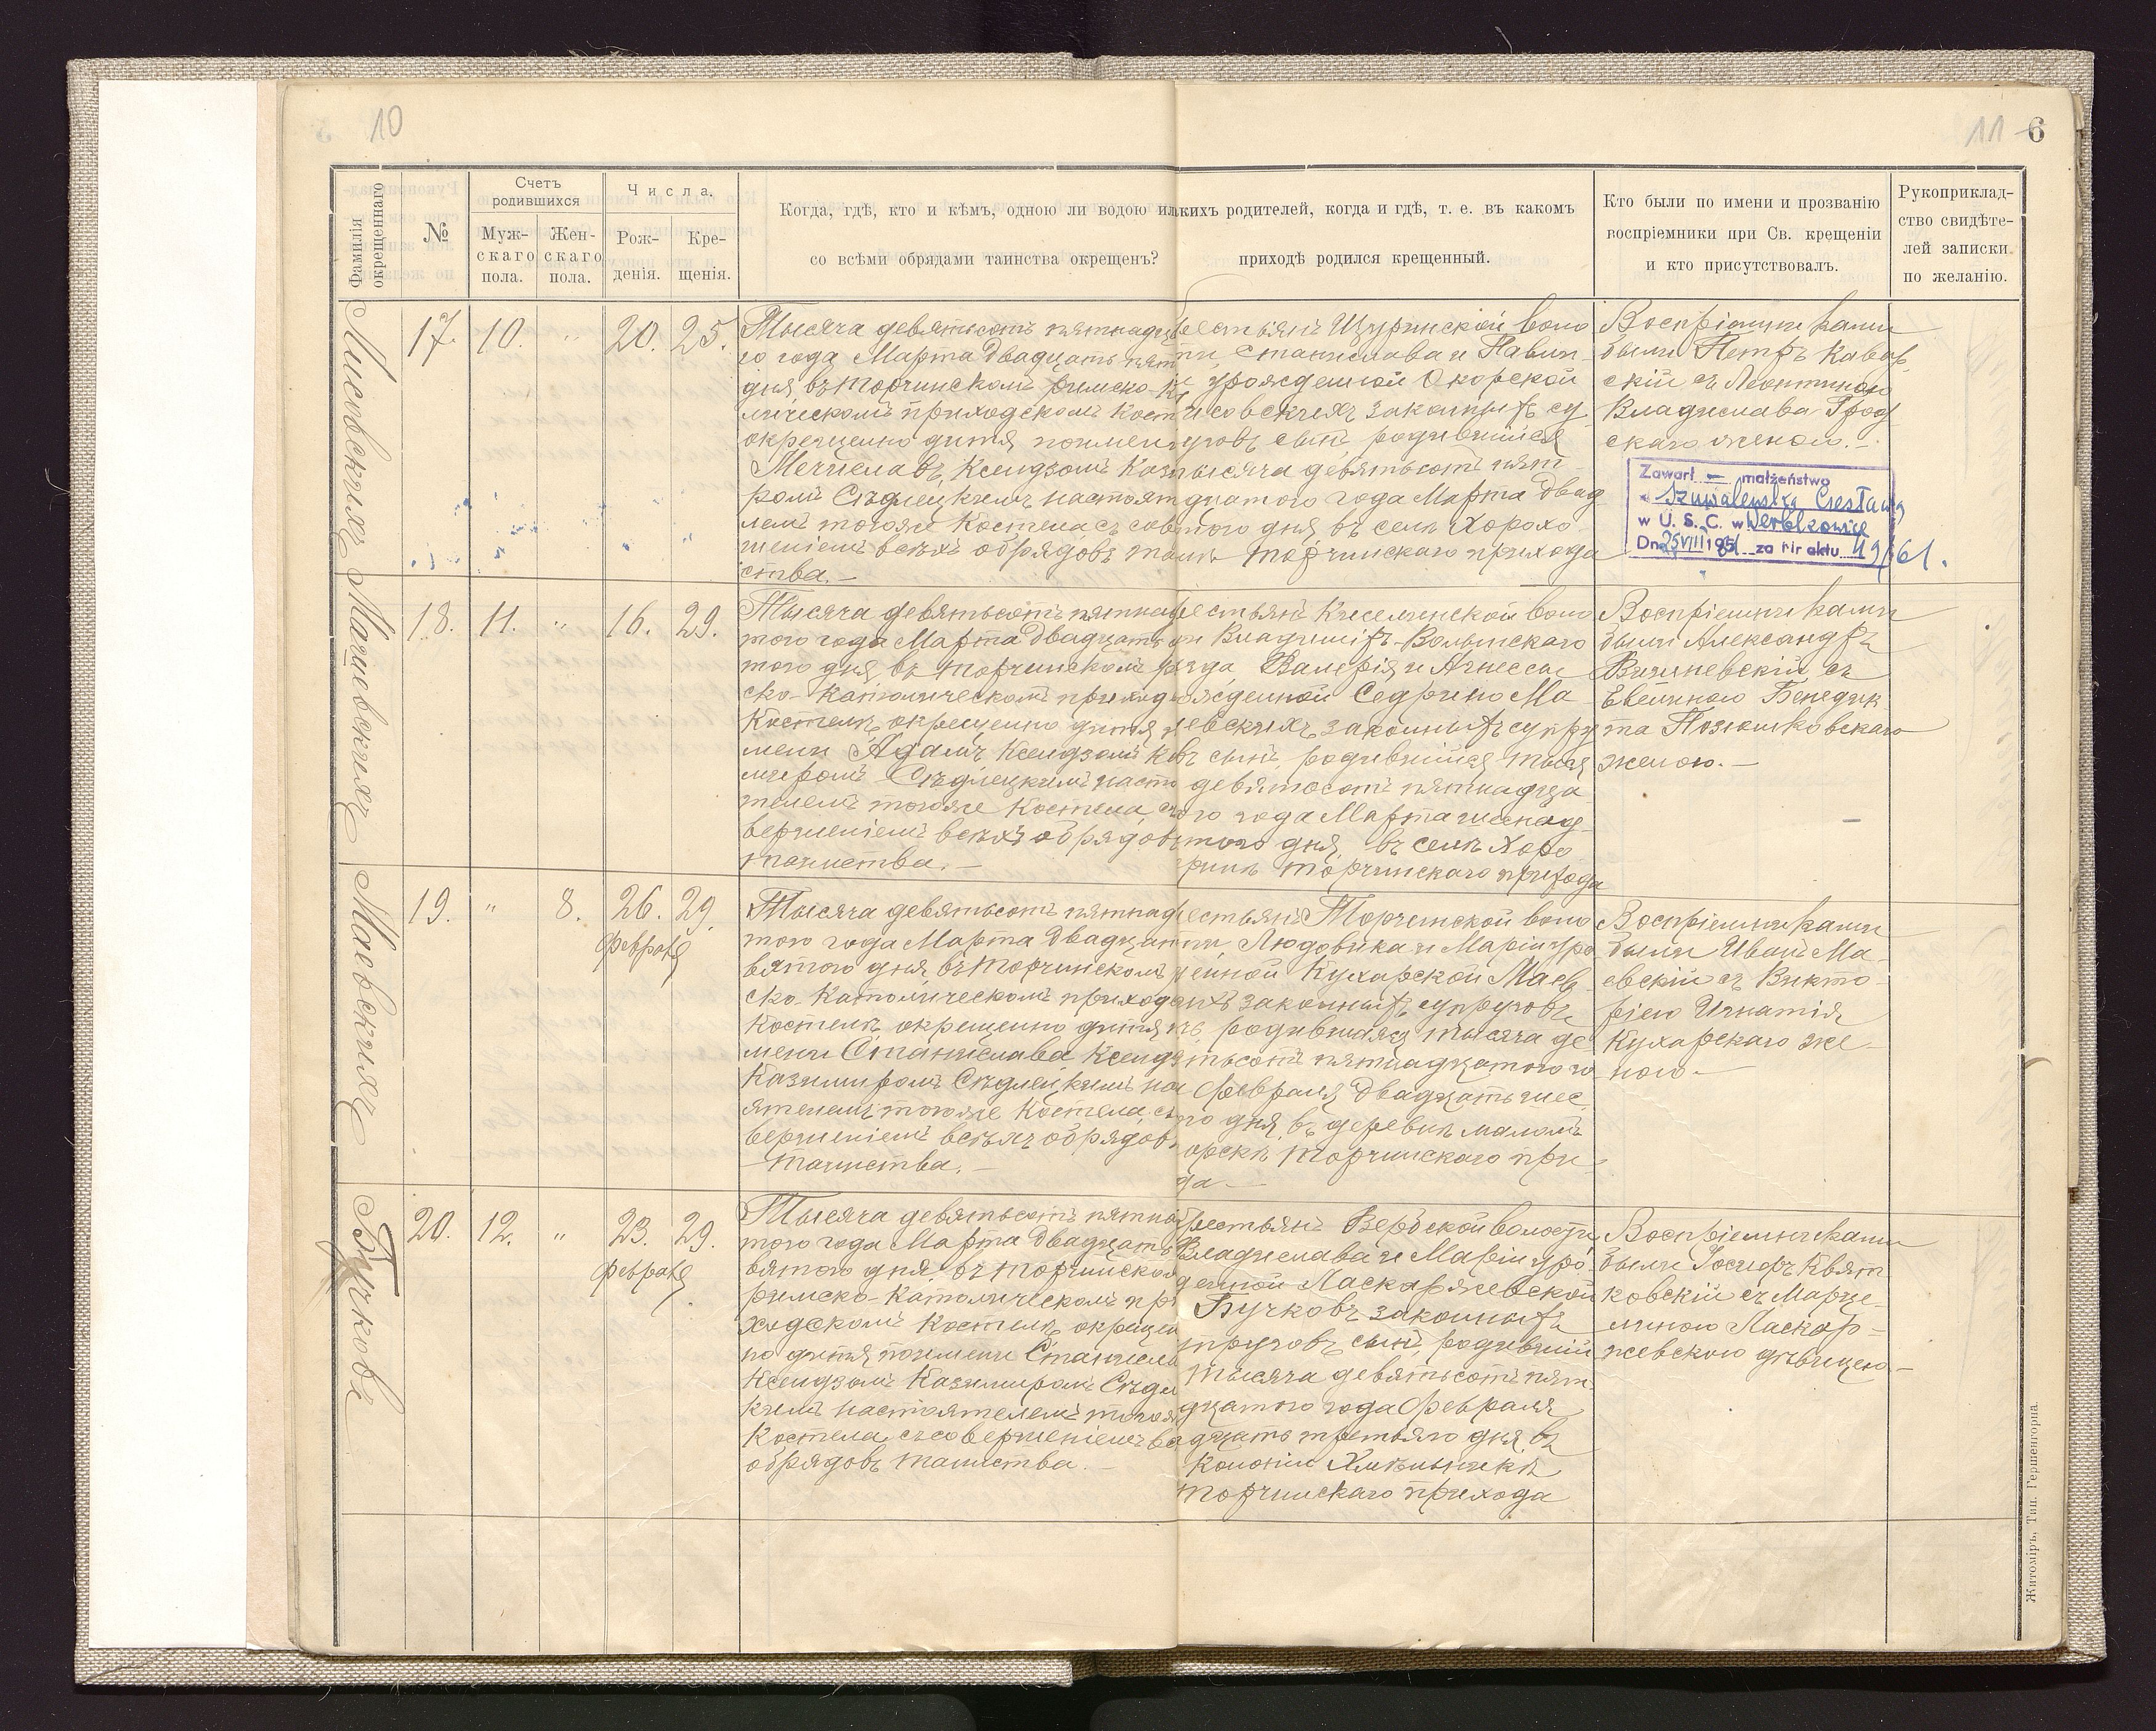 10
11 6
Фамилія окрещеннаго
№
Счетъ родившихся
Мужскаго пола.
Женскаго пола.
Числа.
Рожденія.
Крещенія.
Когда, гдѣ, кто и кѣмъ, одною ли водою ил
со всѣми обрядами таинства окрещенъ?
кихъ родителей, когда и гдѣ, т. е. въ какомъ
приходѣ родился крещенный.
Кто были по имени и прозванію
воспріемники при Св. крещеніи
и кто присутствовалъ.
Рукоприкладство свидѣтелей записки по желанію.
Лисовскихъ
17. 10. " 20. 25.
Тысяча девятьсотъ пятнадца
го года Марта двадцать пят
дня, въ Торчинскомъ римско-к
лическомъ приходскомъ кост
окрещено дитя по имени
Мечиславъ, Ксендзомъ Кази
ромъ Сѣдлецкимъ настоят
лемъ того же Костела съ сов
шеніемъ всѣхъ обрядовъ таин
ства.—
естьянъ Щуринской воло
ти, Станислава и Павли
урожденной Окорской
исовскихъ законныхъ су
уговъ сынъ, родившійся
тысяча девятьсотъ пят
дцатого года Марта двад
того дня въ селѣ Хорохо
Торчинскаго прихода
Воспріемниками
были Петръ
скій съ Леонтиною
Владислава Грод
скаго женою.—
Zawarł — małżeństwo
z Szuwalewską Czesławą
w U. S. C. w Werbkowice
Dn. 25 VIII 1951 za Nr aktu 49/61.
Мацѣевскихъ
18. 11. " 16. 29.
Тысяча девятьсотъ пятна
того года Марта двадцать
того дня, въ Торчинскомъ р
ско-католическомъ приход
Костелѣ, окрещено дитя
мени Адамъ Ксендзомъ К
миромъ Сѣдлецкимъ насто
телемъ того же Костела, с
вершеніемъ всѣхъ обрядов
таинства.—
естьянъ Киселинской воло
и Владиміръ-Волынскаго
ѣзда, Валерія и Агнессы
ожденной Седрино Ма
евскихъ законныхъ супру
въ сынъ, родившійся тыся
девятьсотъ пятнадца
ого года Марта шестнад
того дня, въ селѣ Хоро
Торчинскаго прихода
Воспріемниками
были Александръ
Вишневскій съ
Евелиною Бенедик
та Позюмковскаго
женою.—
Маевскихъ
19. " 8. 26. 29.
Февраля
Тысяча девятьсотъ пятнад
того года Марта двадцат
вятого дня, въ Торчинскомъ
ско-Католическомъ приход
Костелѣ, окрещено дитя
мени Станислава Ксендз
Казимиромъ Сѣдлецкимъ на
ятелемъ того же Костела, с
вершеніемъ всѣхъ обрядов
таинства.—
естьянъ Торчинской воло
ти, Людовика и Маріи уро
енной Кухарской Маев
ихъ законныхъ супруговъ
родившаяся тысяча де
тьсотъ пятнадцатого го
Февраля двадцать шес
го дня, въ деревнѣ малой
Торчинскаго при
да.—
Воспріемниками
были Иванъ Ма
евскій съ Викто
ріею Игнатія
Кухарскаго же
ною.—
Бучковъ
20. 12. " 23. 29.
Февраля
Тысяча девятьсотъ пятна
того года Марта двадцать
вятого дня, въ Торчинском
римско-Католическомъ пр
ходскомъ Костелѣ, окреще
но дитя по имени Станисла
Ксендзомъ Казимиромъ Сѣдл
кимъ настоятелемъ того
Костела, съ совершеніемъ вс
обрядовъ таинства.—
рестьянъ Вербской волости
Владислава и Маріи уро
денной Ласкаржевской
Бучковъ законныхъ
упруговъ сынъ, родивший
тысяча девятьсотъ пят
дцатого года Февраля
адцать третьяго дня, въ
Колоніи
Торчинскаго прихода
Воспріемниками
были Іосифъ Квят
ковскій съ Марце
линою Ласкар
жевскою дѣвицею.—
Житоміръ, Тип. Гершенгорна.